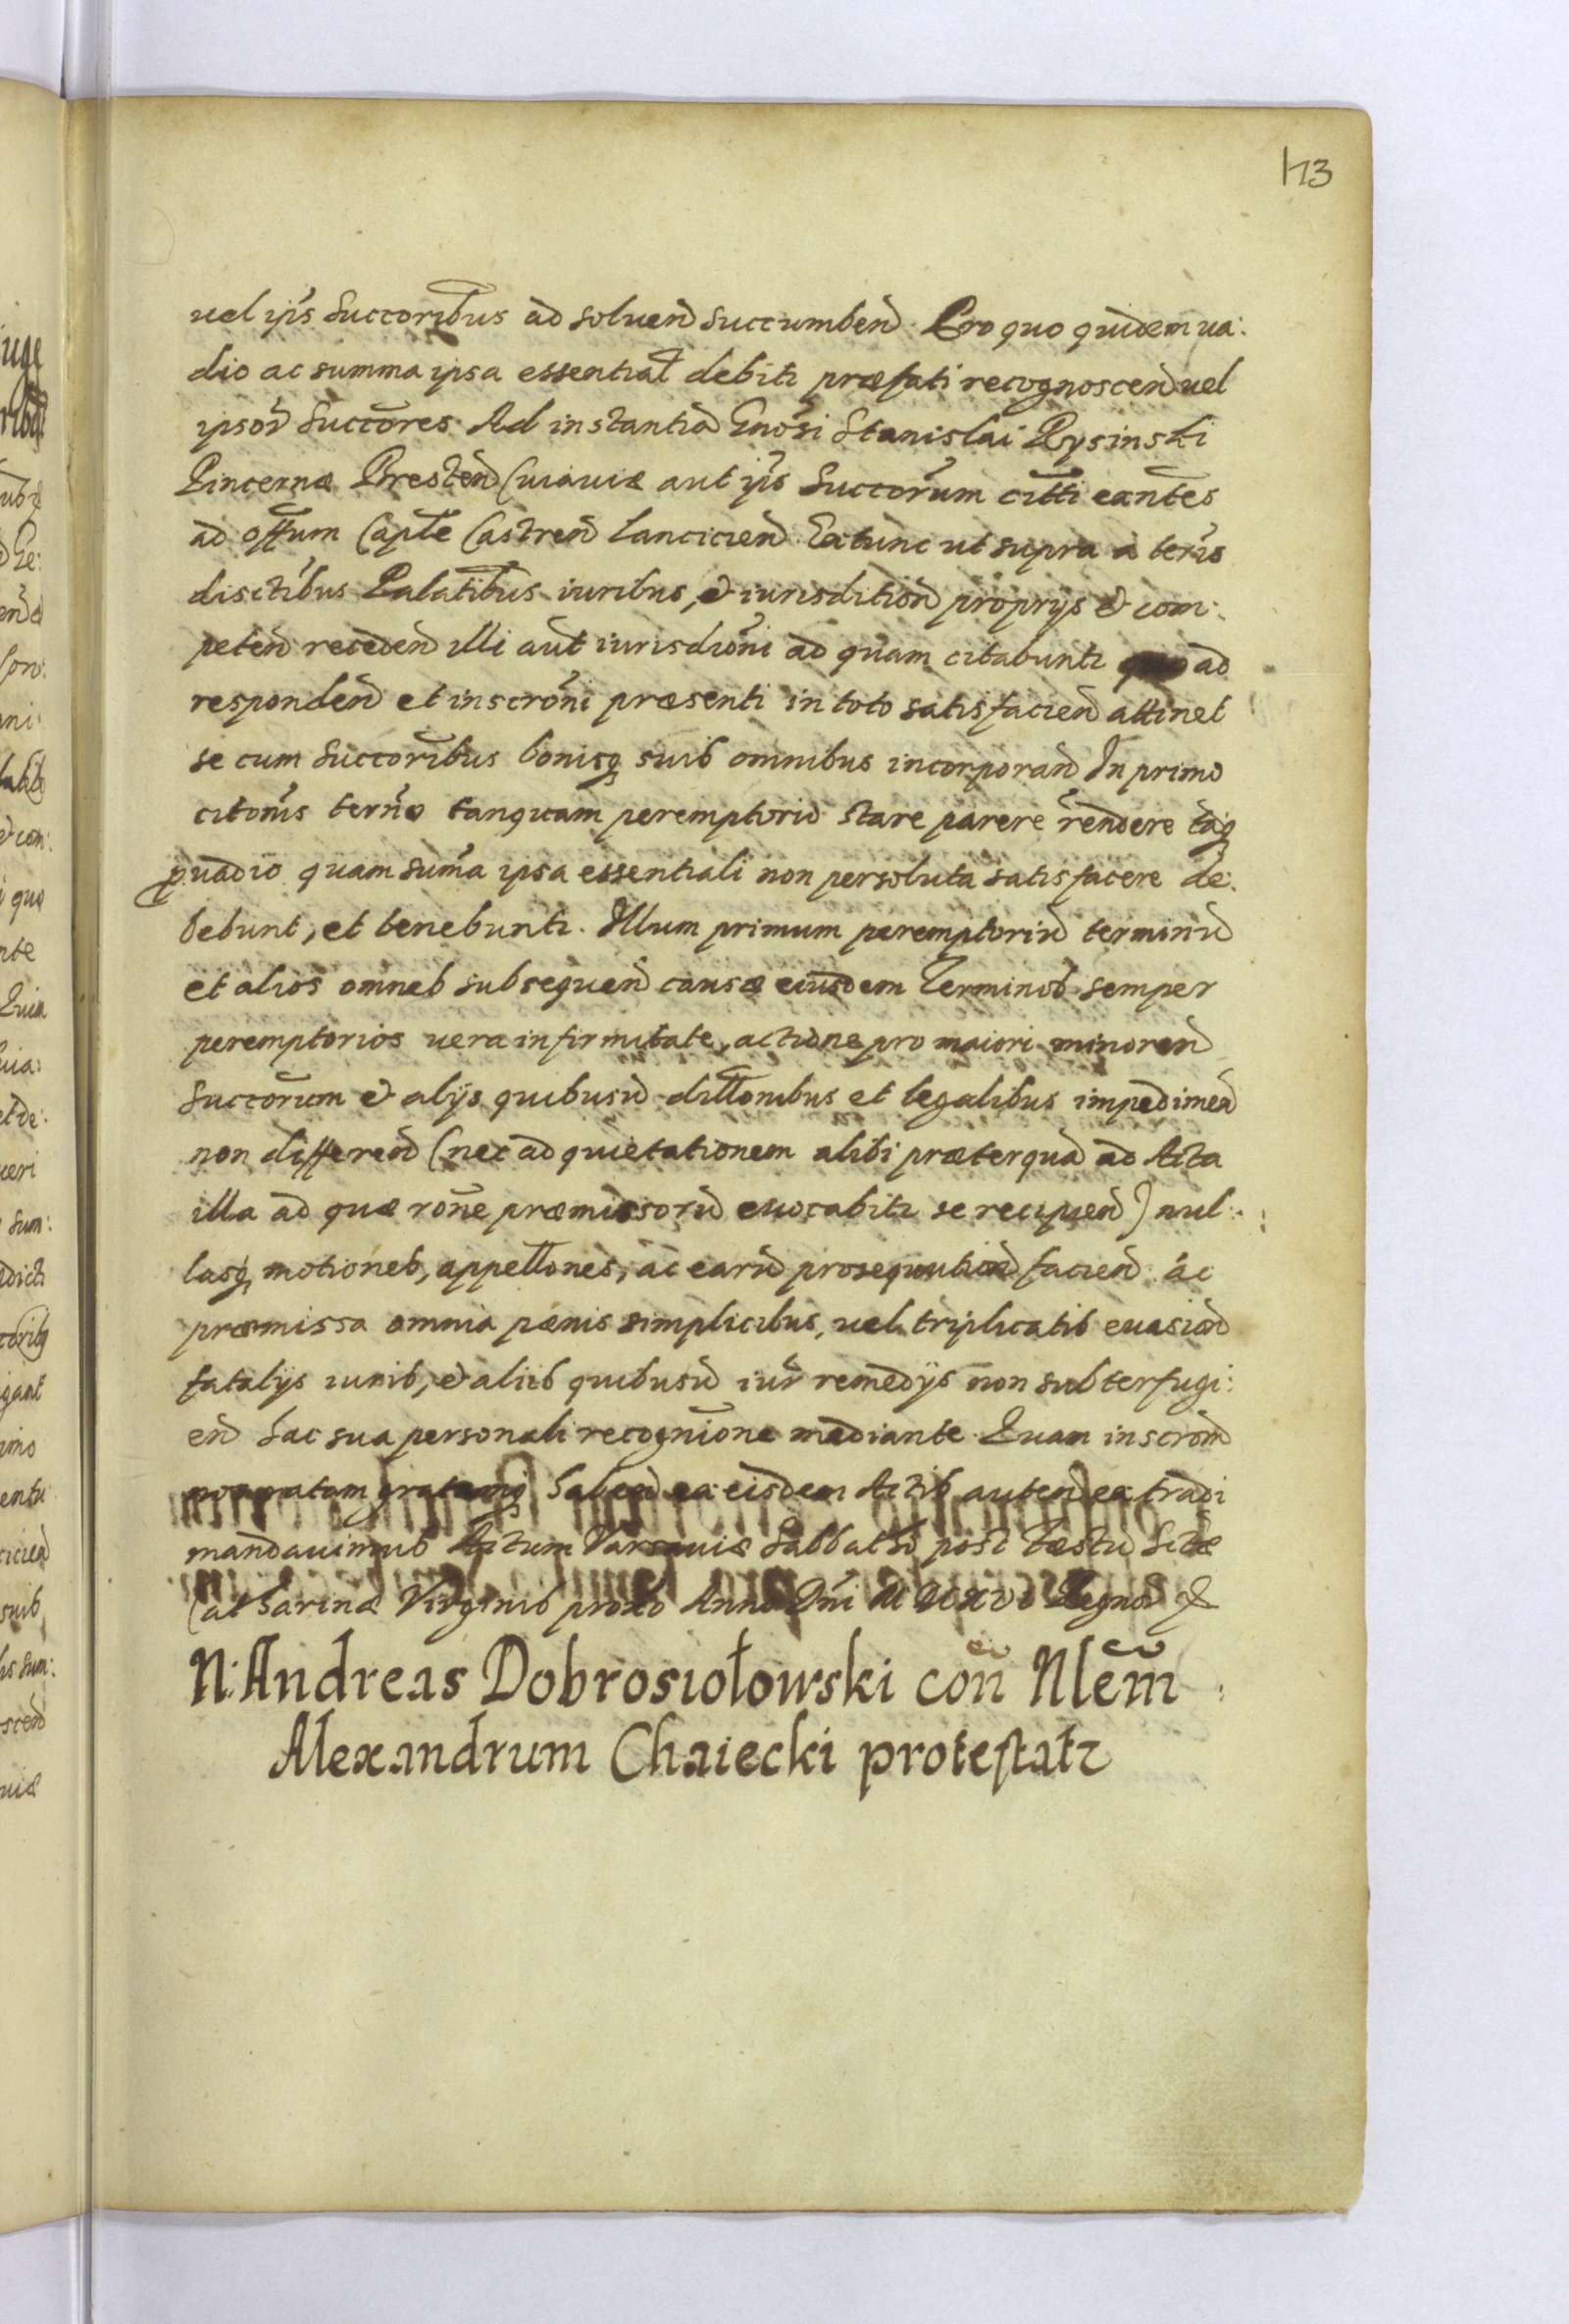 173
uel ip̃is Succorĩbus ad soluen̄d succumben̄d. Pro quo quidem ua:
dio ac summa ipsa essential̃ debiti præfati recognoscen̄d uel
ipsor̃ Succõres. Ad instantiã Gnõsi Stanislai Rysinski
Pincernæ Bresten̄ Cuiauiæ aut ip̃is Succorũm citti eañtes
ad offũm Capl̃e Castren̄ Lancicien̄. Extunc ut supra a terĩs
disctĩbus Palatĩbus iuribus, & iurisdition̄ proprijs & com:
peten̄ receden̄d illi aut̃ iurisdiõni ad quam citabuntr ad
responden̄d et inscrõni præsenti in toto satisfacien̄d attinet
se cum Succorĩbus bonisq suis omnibus incorporan̄d In primo
citoñis terño tanquam peremptorio Stare parere reñdere tãq
p uadio quam sum̃a ipsa essentiali non persoluta satisfacere de:
bebunt, et tenebuntr. Illum primum peremptoriũ terminũ
et alios omnes subsequen̄ causæ eiusdem Terminos semper
peremptorios uera infirmitate, actione pro maiori minoren̄
Succorũm & alijs quibusũ dillõnibus et legalibus impedimen̄
non differen̄d (nec ad quietationem alibi præterquã ad Acta
illa ad quæ roñe præmissorũ euocabitr se recipien̄d) nul:
lasq motiones, appellões, ac earũ prosequution̄ facien̄d ac
præmissa omnia pænis simplicibus, uel triplicatis euasion̄
fatalijs iuris, & aliis quibusũ iur̃ remedijs non subterfugi:
en̄d hac sua personali recogniõne mediante. Quam inscrõm
gratamq haben̄ ex eisdem Actis auten̄ extradi
mandauimus Actum Varsauiæ Sabbatho post Fæstũ Sctæ
Catharinæ Virginis proxo Anno Dñi M DCXVI Regnor̃ &
N: Andreas Dobrosiołowski coñ Mlẽm
Alexandrum Chaiecki protestatr